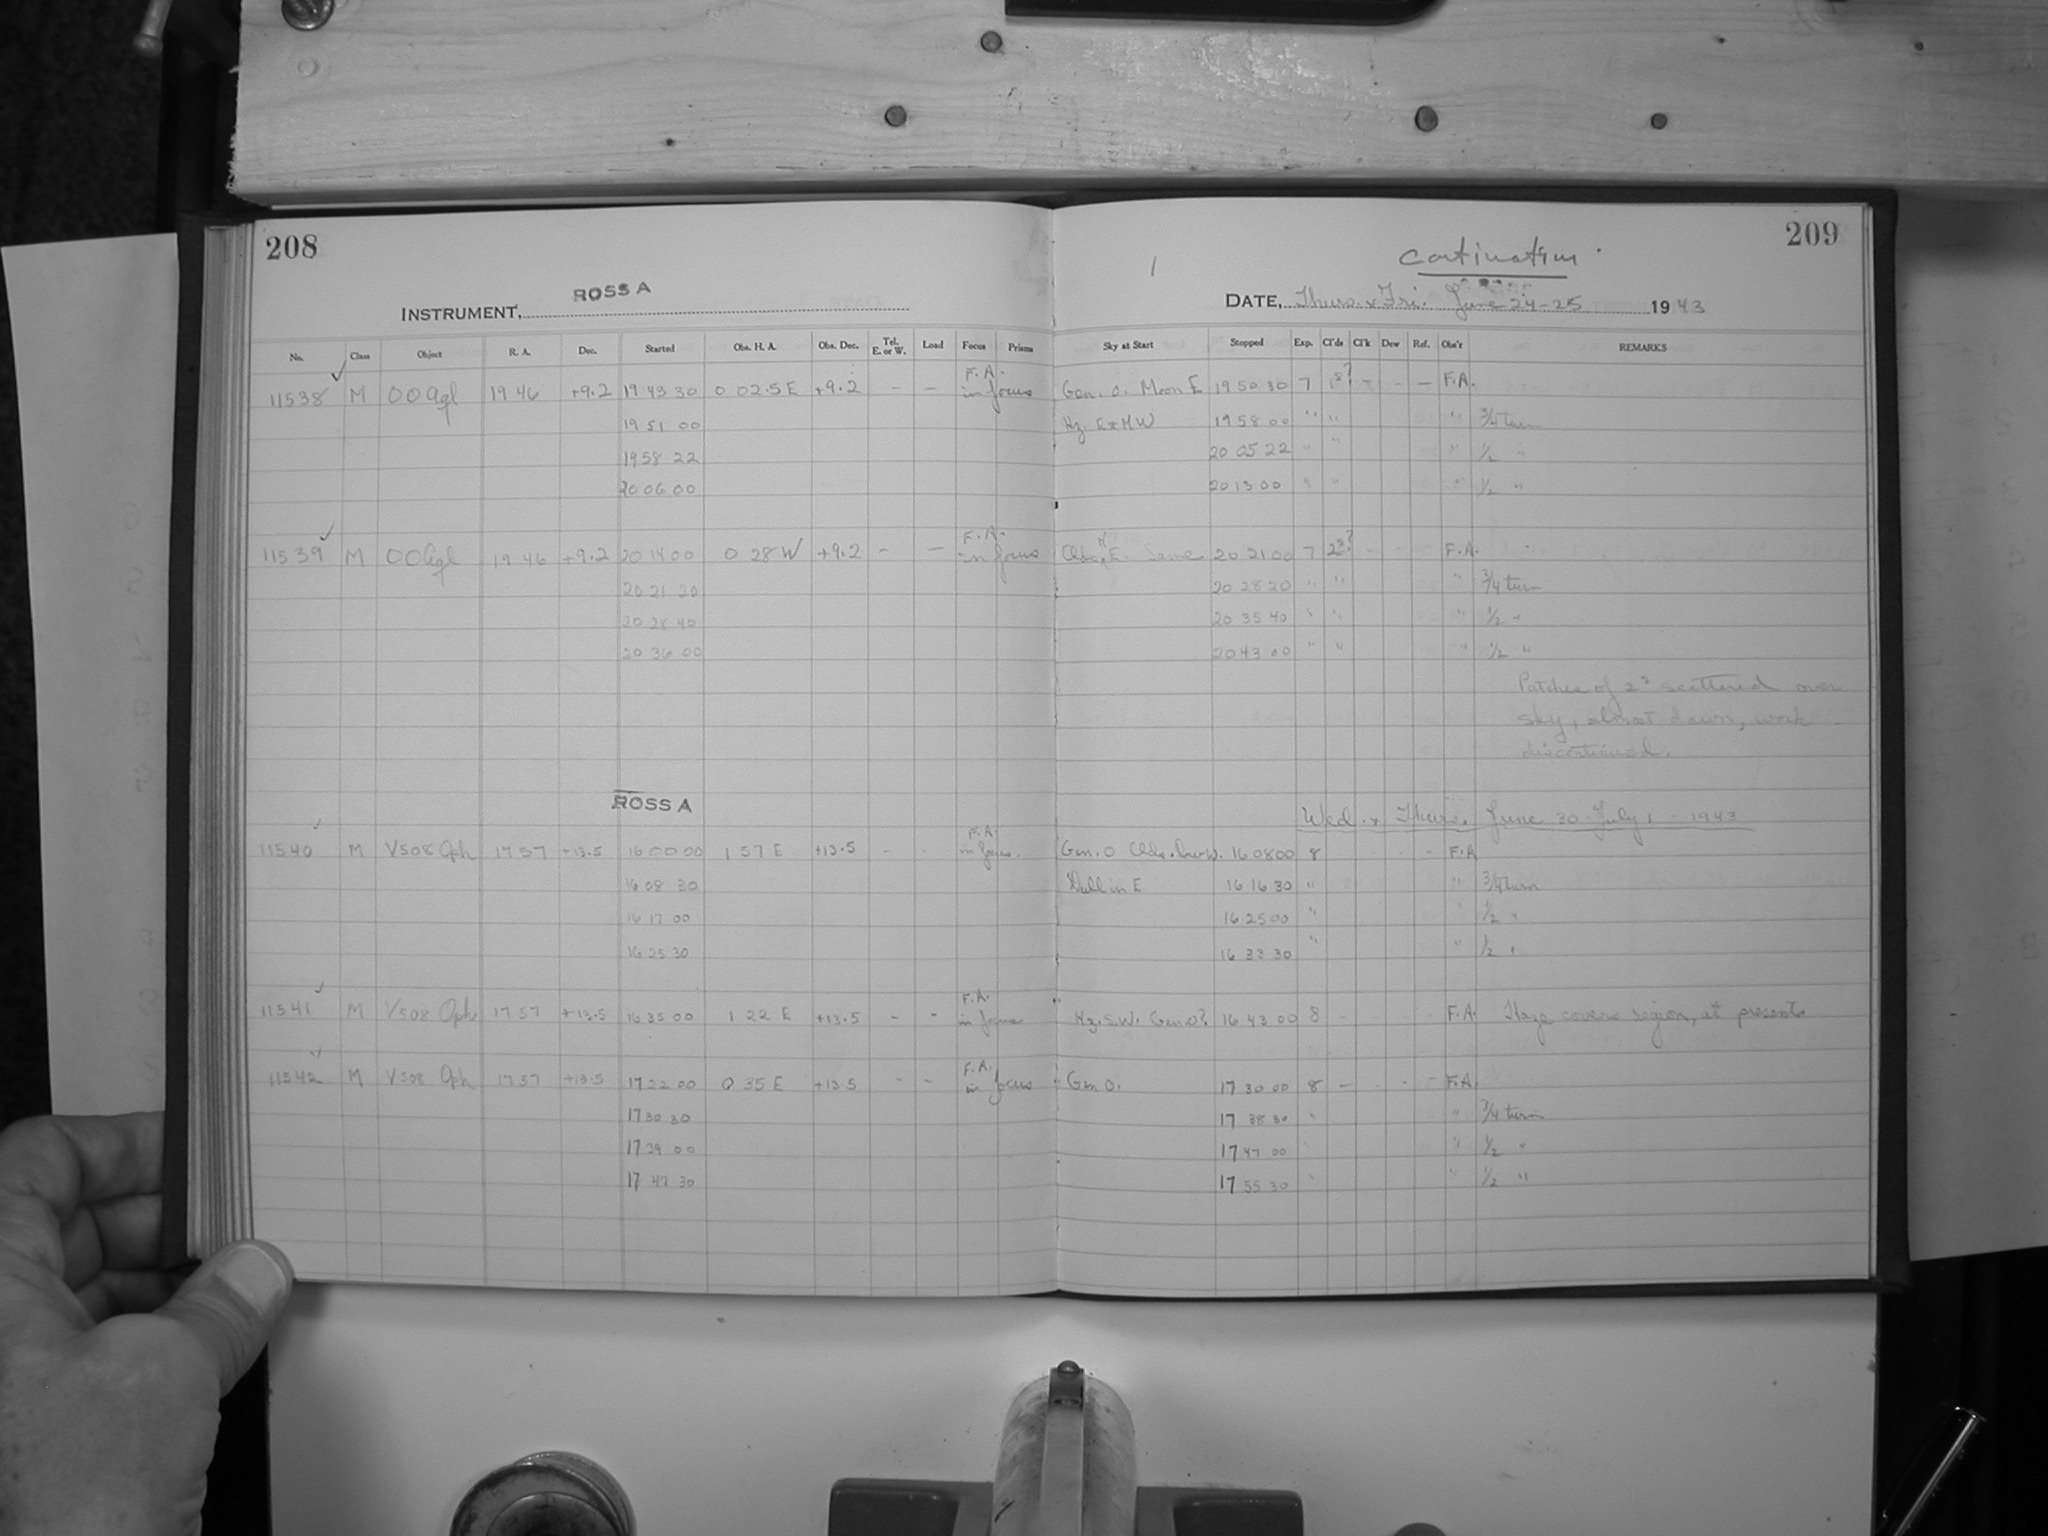 208
209
continuation
INSTRUMENT, ROSS A
DATE, Thurs. & Fri. June 24-25 1943
No. Class Object R. A. Dec. Started Obs. H. A. Obs. Dec. Tel. E. or W. Load Focus Prisms Sky at Start Stopped Exp. Cl'ds Cl'k Dew Ref. Obs'r REMARKS
11538 M OO Aql 19 46 +9.2 19 43 30 0 02.5 E +9.2 - - F.A. in focus Gen. 0. Moon E 19 50 30 7 1s? - - - F.A.
19 51 00 Hz. E & NW 19 58 00 " " " 3/4 turn
19 58 22 20 05 22 " " " 1/2 "
20 06 00 20 13 00 " " " 1/2 "
11539 M OO Aql 19 46 +9.2 20 14 00 0 28 W +9.2 - - F.A. in focus E. Same 20 21 00 7 2s? - - - F.A.
20 21 20 20 28 20 " " " 3/4 turn
20 28 40 20 35 40 " " " 1/2 "
20 36 00 20 43 00 " " " 1/2 "
Patches of 2s scattered over
sky, almost dawn, work
discontinued.
ROSS A
Wed. & Thurs. June 30 - July 1 - 1943
11540 M V508 Oph 17 57 +13.5 16 00 00 1 57 E +13.5 - - F.A. in focus. Gen. 0 Clds. 16 08 00 8 - - - F.A.
16 08 30 Dull in E 16 16 30 " " 3/4 turn
16 17 00 16 25 00 " " 1/2 "
16 25 30 16 33 30 " " 1/2 "
11541 M V508 Oph 17 57 +13.5 16 35 00 1 22 E +13.5 - - F.A. in focus Hz. S.W. Gen 0? 16 43 00 8 - - - - F.A. Haze covers region, at present
11542 M V508 Oph 17 57 +13.5 17 22 00 0 35 E +13.5 - - F.A. in focus Gen 0. 17 30 00 8 - - - - F.A.
17 30 30 17 38 30 " " 3/4 turn
17 39 00 17 47 00 " " 1/2 "
17 47 30 17 55 30 " " 1/2 "